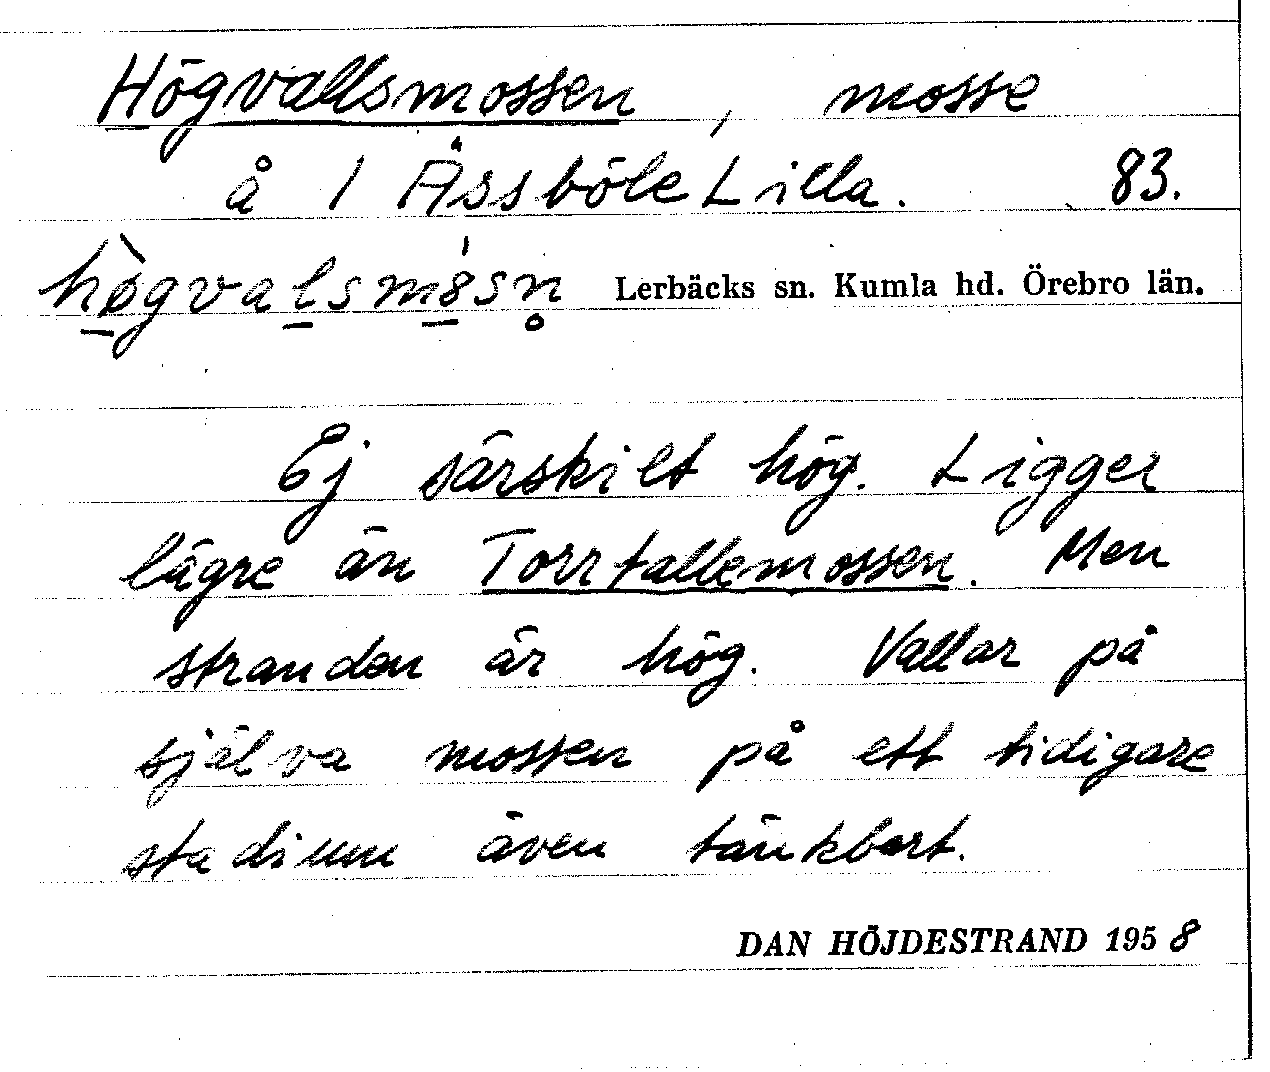 Högvallsmossen, mosse
å 1 Åssböle Lilla. 83.
hø̀gvalsmósn̥ Lerbäcks sn. Kumla hd. Örebro län.
Ej särskilt hög. Ligger
lägre än Torrtallemossen. Men
stranden är hög. Vallar på
själva mossen på ett tidigare
stadium även tänkbart.
DAN HÖJDESTRAND 1958